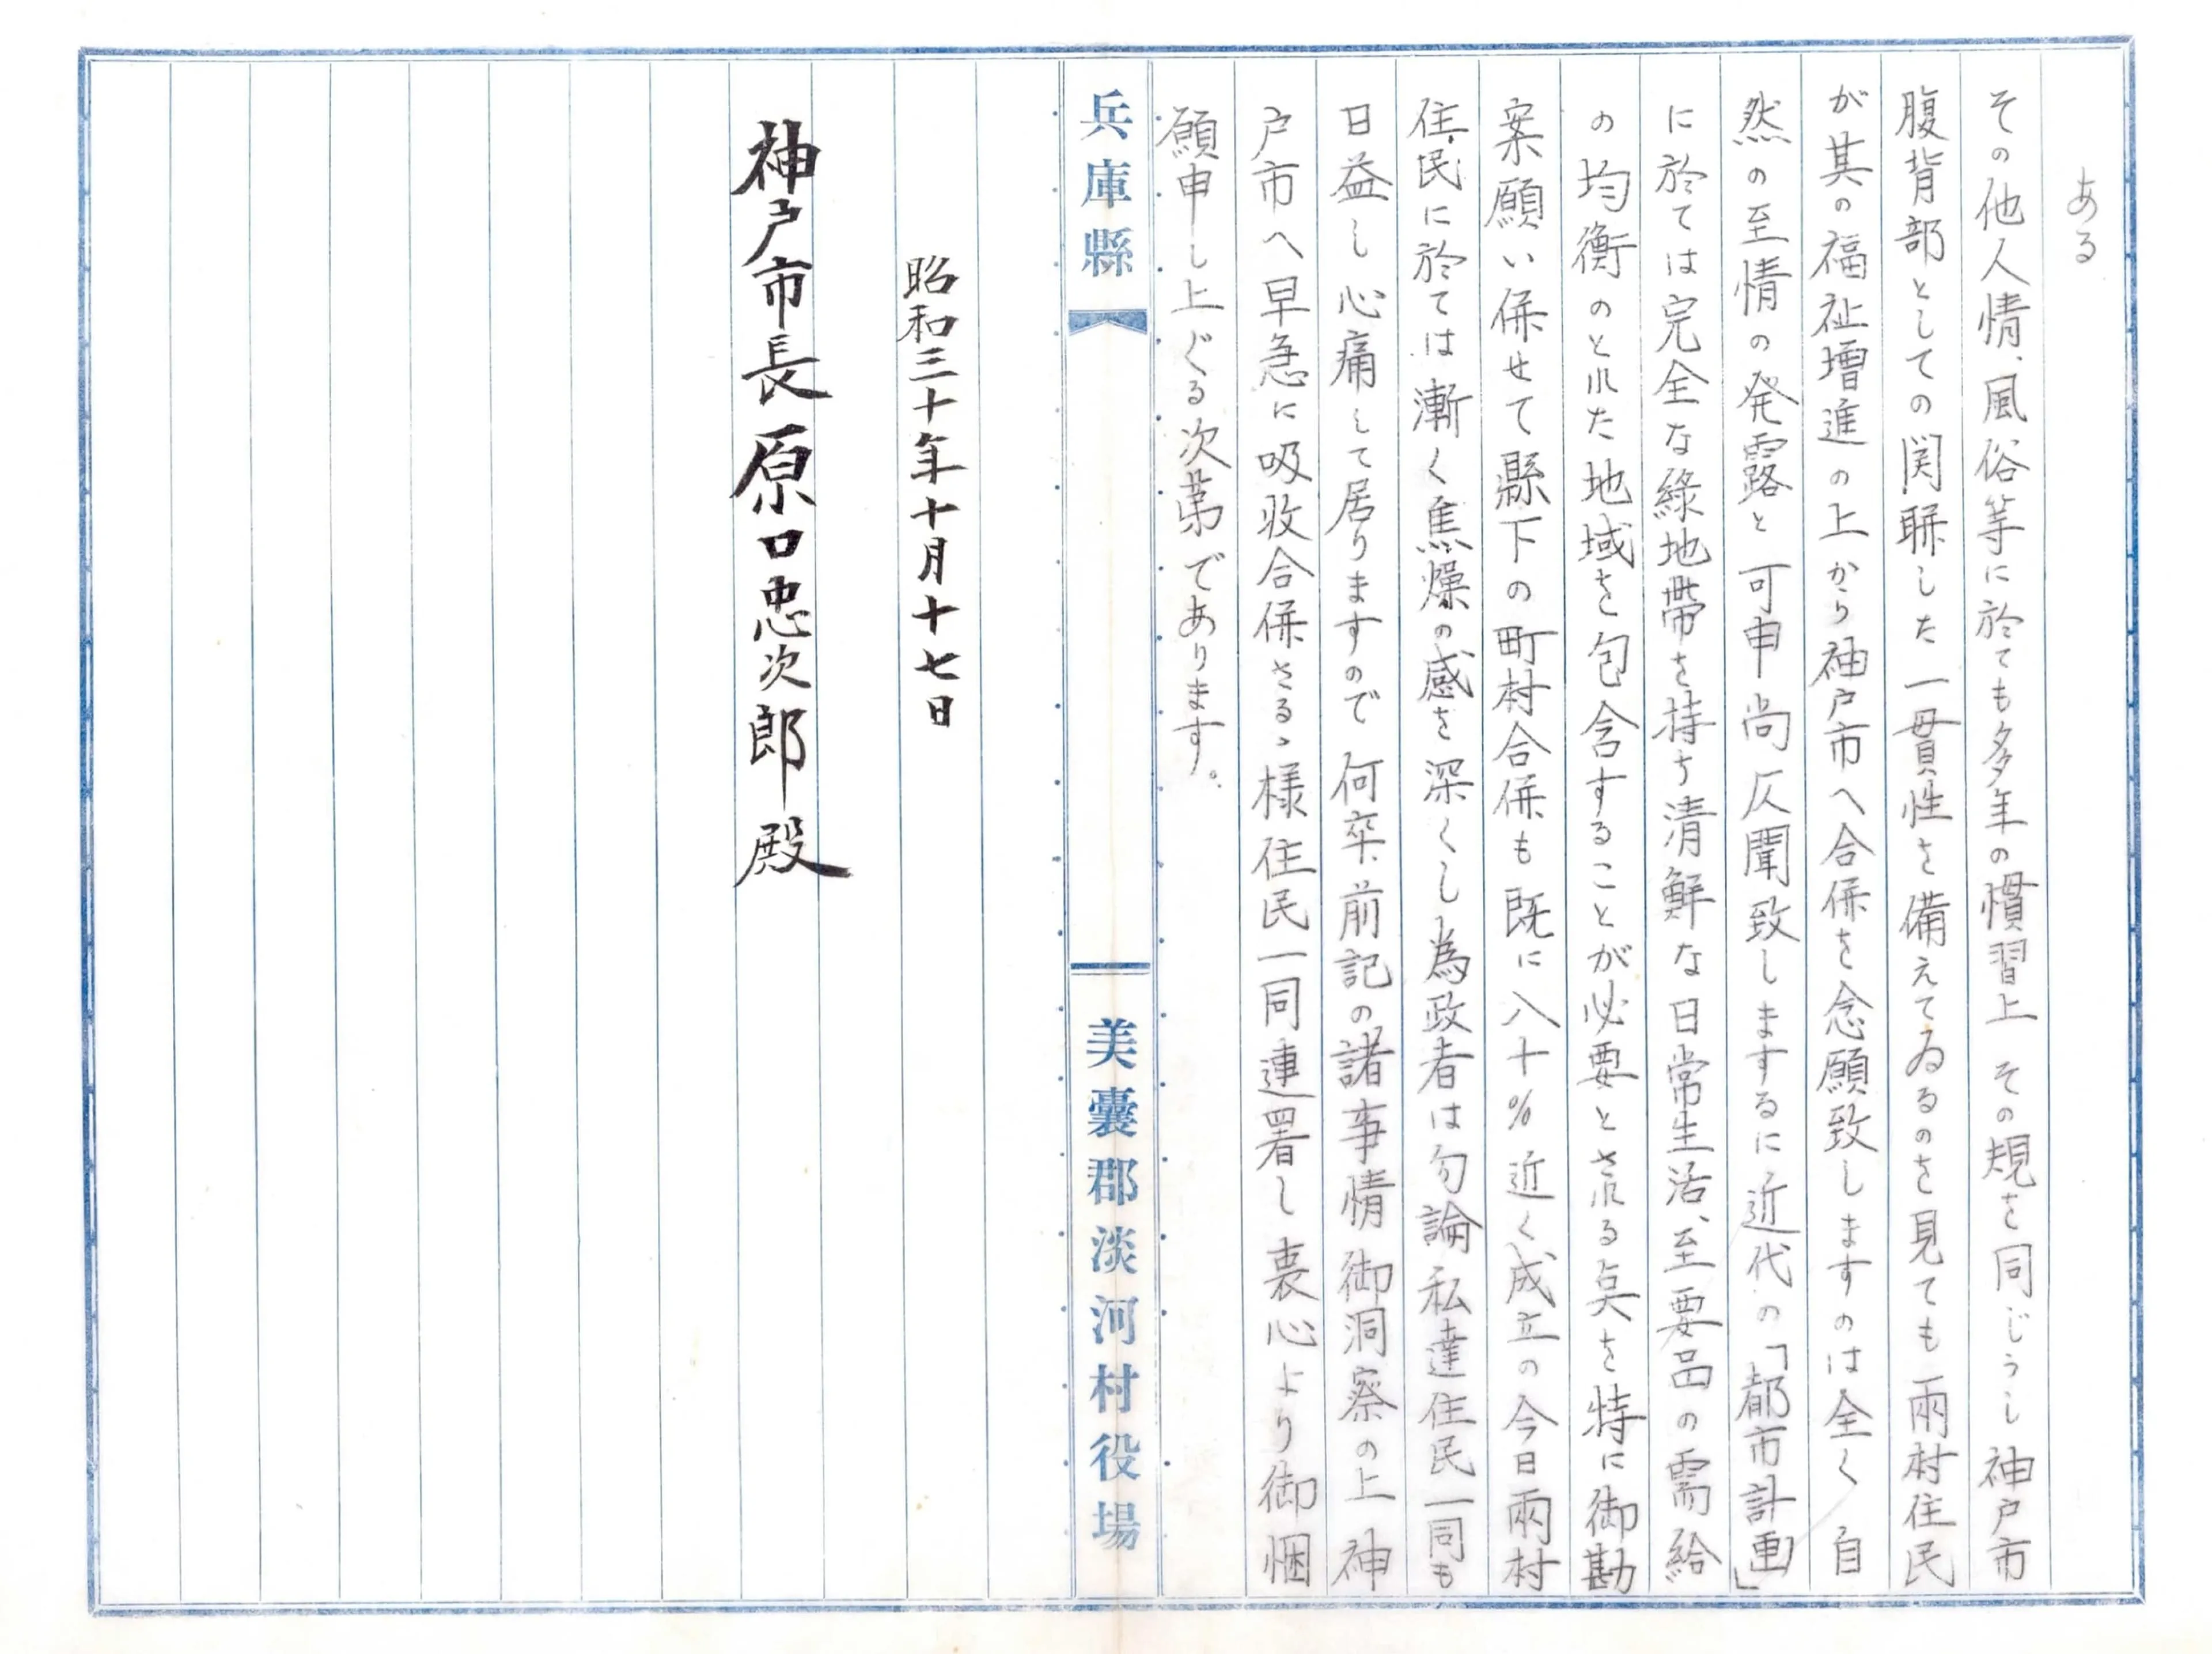 ある
その他人情、風俗等に於ても多年の慣習上その規を同じうし神戸市
腹背部としての関聨した一貫性を備えてゐるのを見ても兩村住民
が其の福祉増進の上から神戸市へ合併を念願致しますのは全く自
然の至情の発露と可申尚仄聞致しまするに近代の「都市計画」
に於ては完全な緑地帶を持ち清鮮な日常生活、至要品の需給
の均衡のとれた地域を包含することが必要とされる点を特に御勘
案願い併せて縣下の町村合併も既に八十%近く成立の今日兩村
住民に於ては漸く焦燥の感を深くし為政者は勿論私達住民一同も
日益し心痛して居りますので何卒前記の諸事情御洞察の上神
戸市へ早急に吸收合併さるゝ様住民一同連署し衷心より御悃
願申し上ぐる次第であります。
兵庫縣
美嚢郡淡河村役場
昭和三十年十月十七日
神戸市長原口忠次郎殿